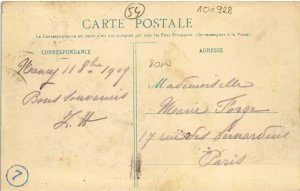 54
101928
CARTE POSTALE
La Correspondance au recto n'est pas acceptée par tous les Pays Étrangers. (Se renseigner à la Poste)
CORRESPONDANCE
ADRESSE
Nancy 11 8bre 1909
Bons Souvenirs
Mademoiselle
Marie Forge
17 rue des Bernardins
Paris
7